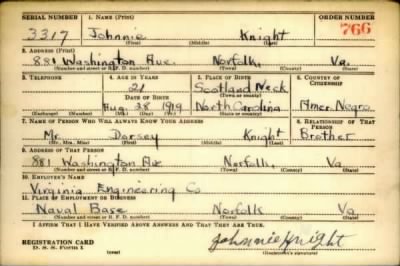 SERIAL NUMBER 1. NAME (Print) ORDER NUMBER
3317 Johnnie Knight 766
(First) (Middle) (Last)
2. ADDRESS (Print)
881 Washington Ave. Norfolk, Va.
(Number and street or R. F. D. number) (Town) (County) (State)
3. TELEPHONE 4. AGE IN YEARS 5. PLACE OF BIRTH 6. COUNTRY OF CITIZENSHIP
21 Scotland Neck
DATE OF BIRTH (Town or county)
Aug. 28 1919 North Carolina Amer. Negro
(Exchange) (Number) (Mo.) (Day) (Yr.) (State or country)
7. NAME OF PERSON WHO WILL ALWAYS KNOW YOUR ADDRESS 8. RELATIONSHIP OF THAT PERSON
Mr. Dorsey Knight Brother
(Mr., Mrs., Miss) (First) (Middle) (Last)
9. ADDRESS OF THAT PERSON
881 Washington Ave Norfolk, Va
(Number and street or R. F. D. number) (Town) (County) (State)
10. EMPLOYER'S NAME
Virginia Engineering Co
11. PLACE OF EMPLOYMENT OR BUSINESS
Naval Base Norfolk Va
(Number and street or R. F. D. number) (Town) (County) (State)
I AFFIRM THAT I HAVE VERIFIED ABOVE ANSWERS AND THAT THEY ARE TRUE.
REGISTRATION CARD Johnnie Knight
D. S. S. Form 1 (over) (Registrant's signature)